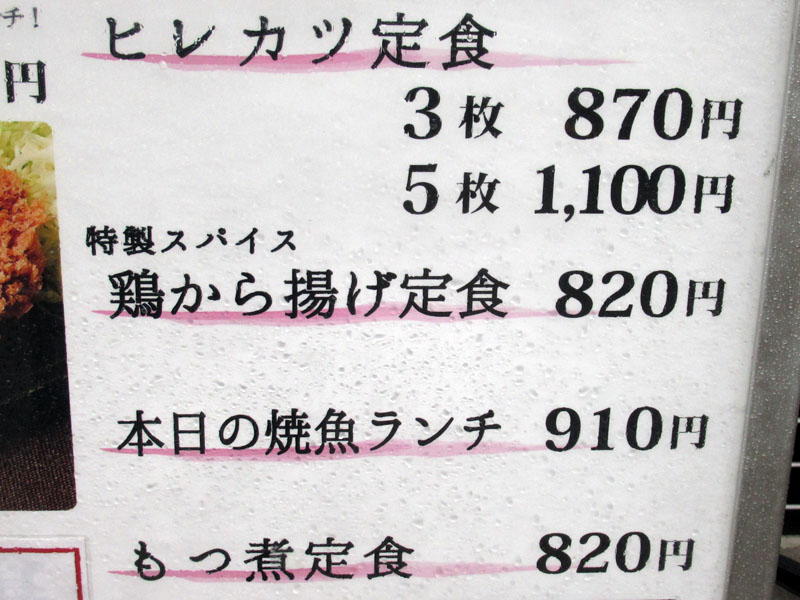 チ!
円
ヒレカツ定食
3枚 870円
5枚 1,100円
特製スパイス
鶏から揚げ定食 820円
本日の焼魚ランチ 910円
もつ煮定食 820円